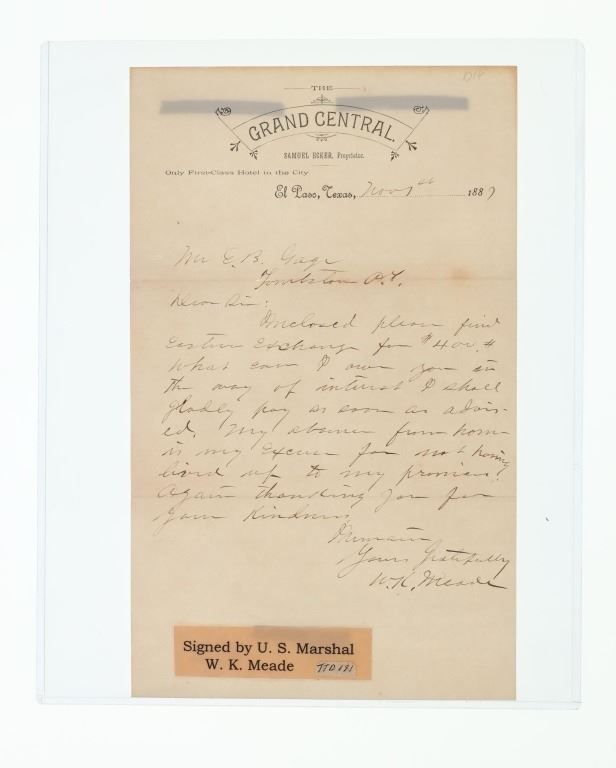 THE
GRAND CENTRAL.
SAMUEL ECKER, Proprietor.
Only First-Class Hotel in the City
El Paso, Texas, Nov 1st 1887
Mr E. B. Gage
Tombstone A.T.
Dear Sir:
Enclosed please find
Eastern Exchange for $400.#
What ever I owe you in
the way of interest I shall
gladly pay as soon as advis-
ed. My absence from home
is my Excuse for not having
lived up to my promises.
Again thanking you for
your Kindness
I remain
Yours Gratefully
W. K. Meade
Signed by U. S. Marshal
W. K. Meade TTD 191